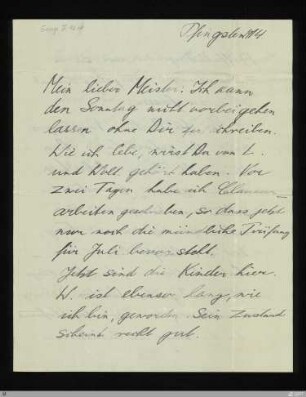 Pfingsten
Mein lieber Meister! Ich kann
den Sonntag nicht vorbeigehen
lassen ohne Dir zu schreiben.
Wie ich lebe, wirst Du von L.
und Woll gehört haben. Vor
zwei Tagen habe ich
arbeiten geschrieben, so dass jetzt
nur noch die mündliche Prüfung
für Juli bevorsteht.
Jetzt sind die Kinder hier.
W. ist ebenso lang, wie
ich bin, geworden. Sein Zustand
scheint recht gut.